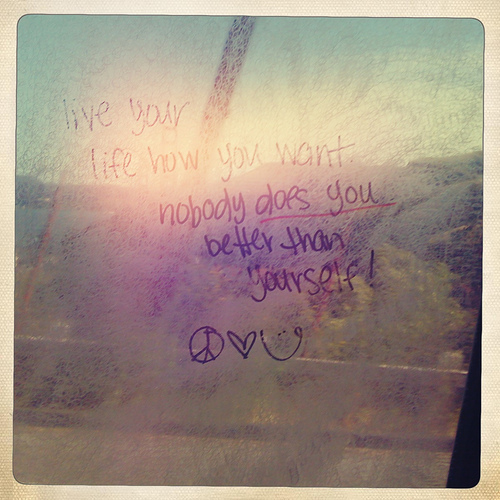 live your
life how you want.
nobody does you
better than
yourself!